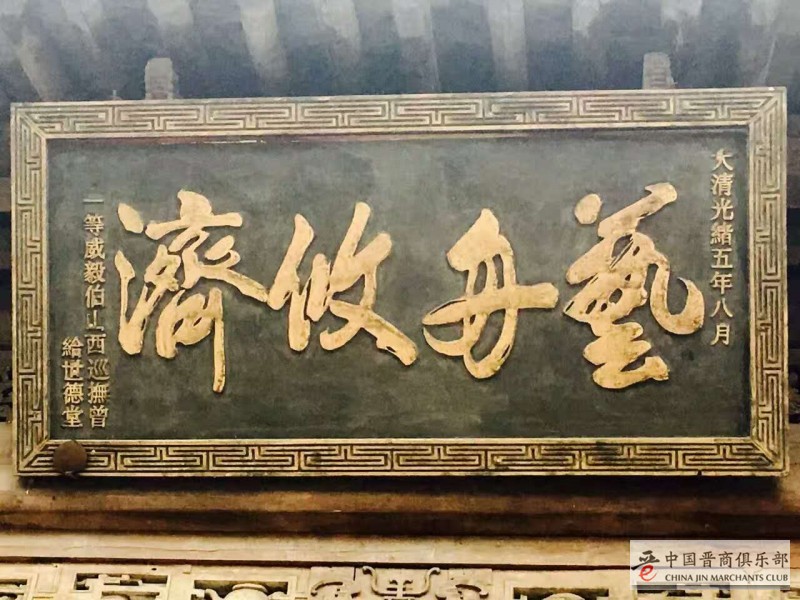 大清光緒五年八月
藝舟攸濟
一等威毅伯山西巡撫曾
給世德堂
中国晋商俱乐部
CHINA JIN MARCHANTS CLUB